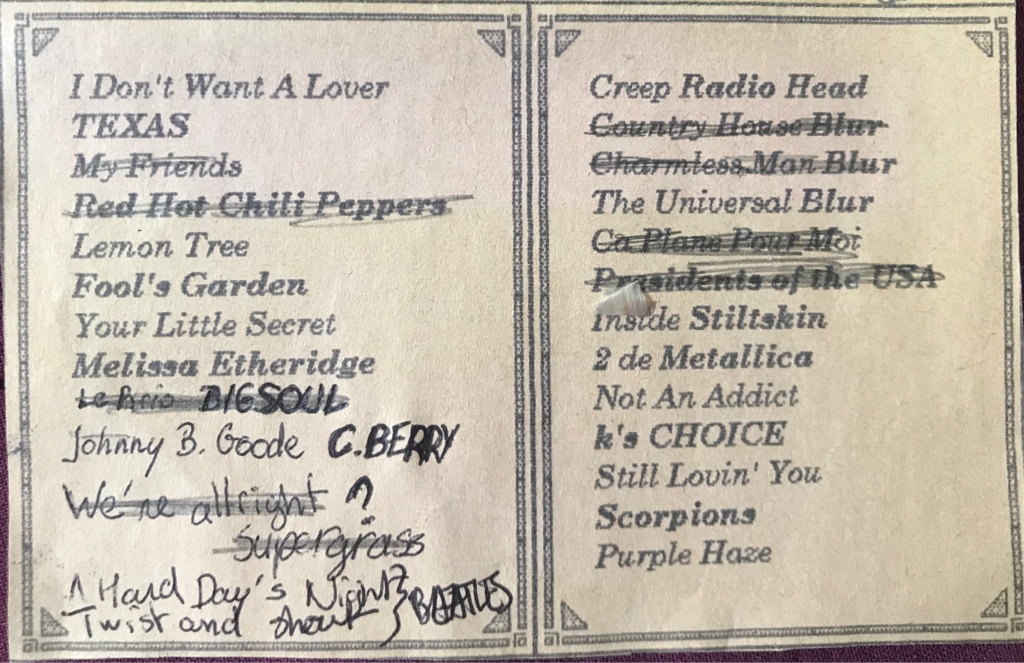 I Don't Want A Lover
TEXAS
My Friends
Red Hot Chili Peppers
Lemon Tree
Fool's Garden
Your Little Secret
Melissa Etheridge
Le Brio BIGSOUL
Johnny B. Goode C.BERRY
We're allright ?
Supergrass
A Hard Day's Night
Twist and shout } BEATLES
Creep Radio Head
Country House Blur
Charmless Man Blur
The Universal Blur
Ca Plane Pour Moi
Presidents of the USA
Inside Stiltskin
2 de Metallica
Not An Addict
k's CHOICE
Still Lovin' You
Scorpions
Purple Haze